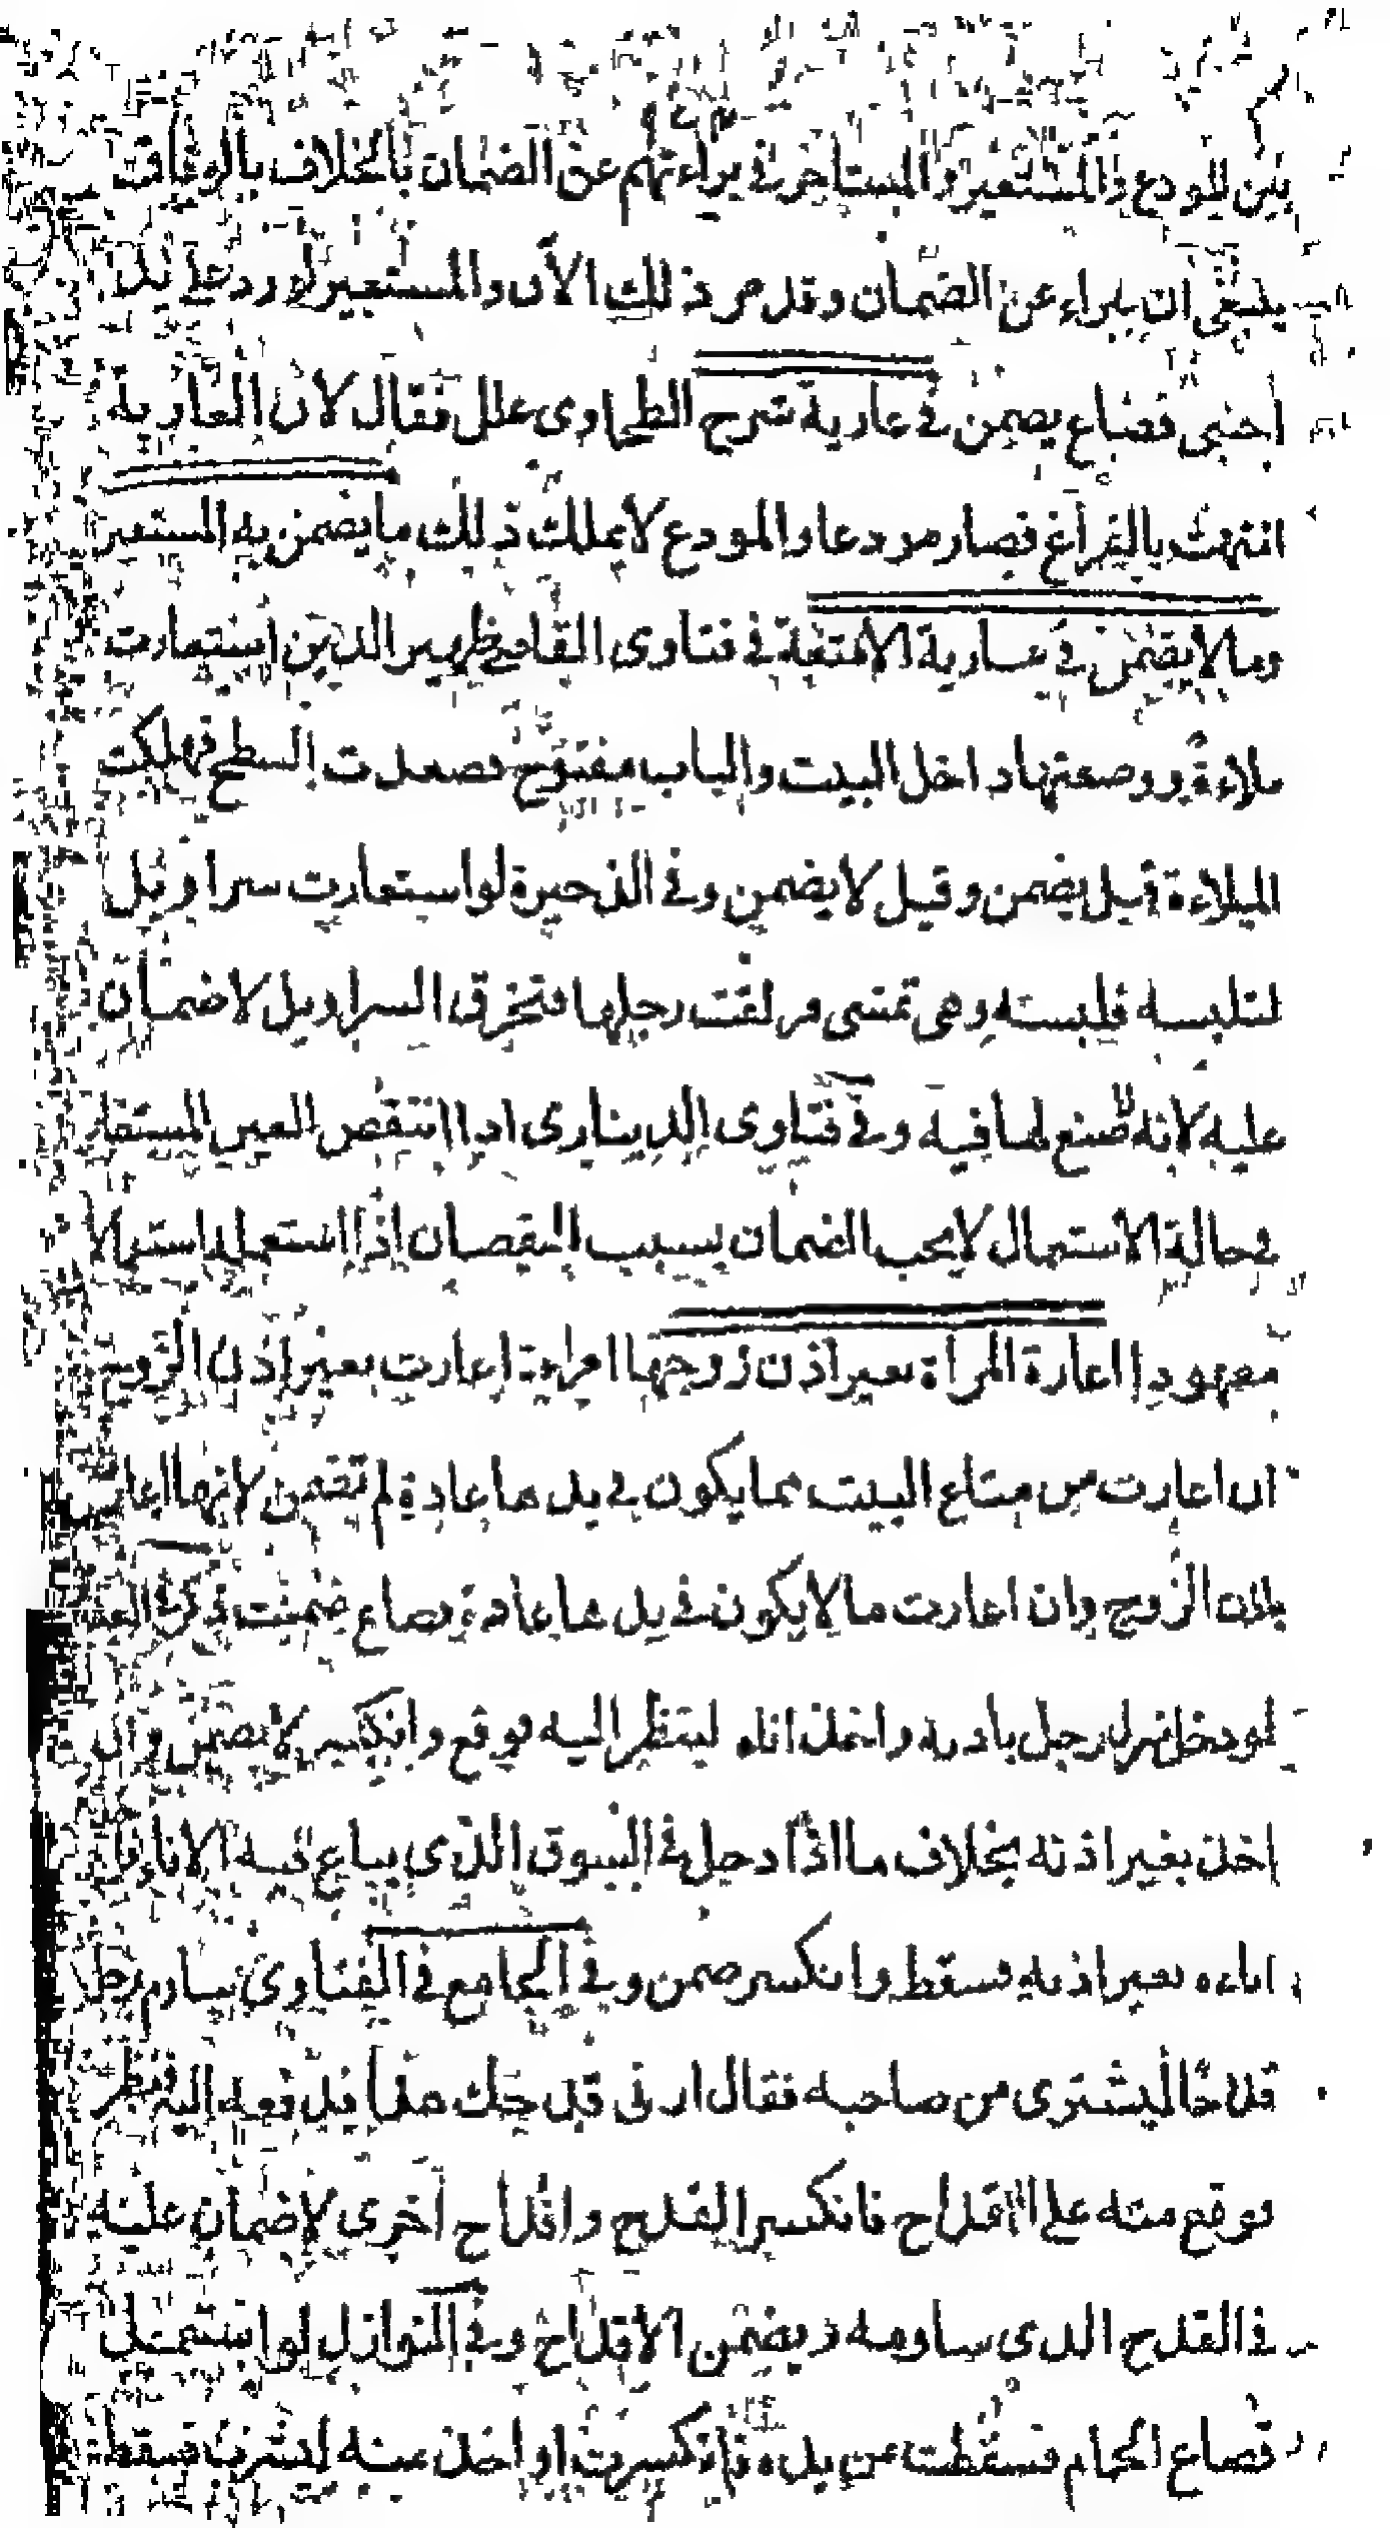 بين المودع والمستعير والمستاجر في براءتهم عن الضمان بالخلاف بالوفاق
ينبغى ان يبراء عن الضمان وقد مر ذلك الآن والمستعير لو رد على يد
اجنبى فضاع يضمن في عارية شرح الطحاوى علل فقال لان العارية
انتهت بالفراغ فصار مودعا والمودع لا يملك ذلك ما يضمن به المستعير
وما لا يضمن في عارية الامتعة في فتاوى القاضى ظهير الدين استعارت
ملاءة ووضعتها داخل البيت والباب مفتوح فصعدت السطح فهلكت
الملاءة قيل يضمن وقيل لا يضمن وفي الذخيرة لو استعارت سراويل
لتلبسه فلبسته وهى تمشى فزلقت رجلها فتخرق السراويل لا ضمان
عليه لانه صنع لها فيه وفي فتاوى الدينارى اذا انتقص العين المستعار
في حالة الاستعمال لا يجب الضمان بسبب النقصان اذا استعمله استعمالا
معهودا اعارة المرأة بغير اذن زوجها امراءة اعارت بغير اذن الزوج
ان اعارت من متاع البيت مما يكون في يدها عادة لم تضمن لانها اعارت
باذن الزوج وان اعارت ما لا يكون في يدها عادة فضاع ضمنت
لو دخل منزل رجل باذنه واخذ اناء لينظر اليه فوقع وانكسر لا يضمن وان
اخذ بغير اذنه بخلاف ما اذا دخل في السوق الذى يباع فيه الاناء
اناءه بغير اذنه فسقط وانكسر ضمن وفي الجامع في الفتاوى ساوم رجلا
قدحا ليشترى من صاحبه فقال ارنى قدحك هذا فدفعه اليه فنظر
فوقع منه على اقداح فانكسر القدح واقداح اخرى لا ضمان عليه
في القدح الذى ساومه ويضمن الاقداح وفي النوازل لو استعمل
قصاع الحمام فسقطت من يده فانكسرت او اخذ منه ليشرب فسقط